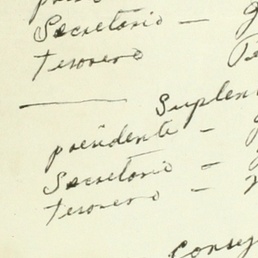 Secretario -
Tesorero
Suplen
preñdente -
Secretario -
Tesorero -
Consej